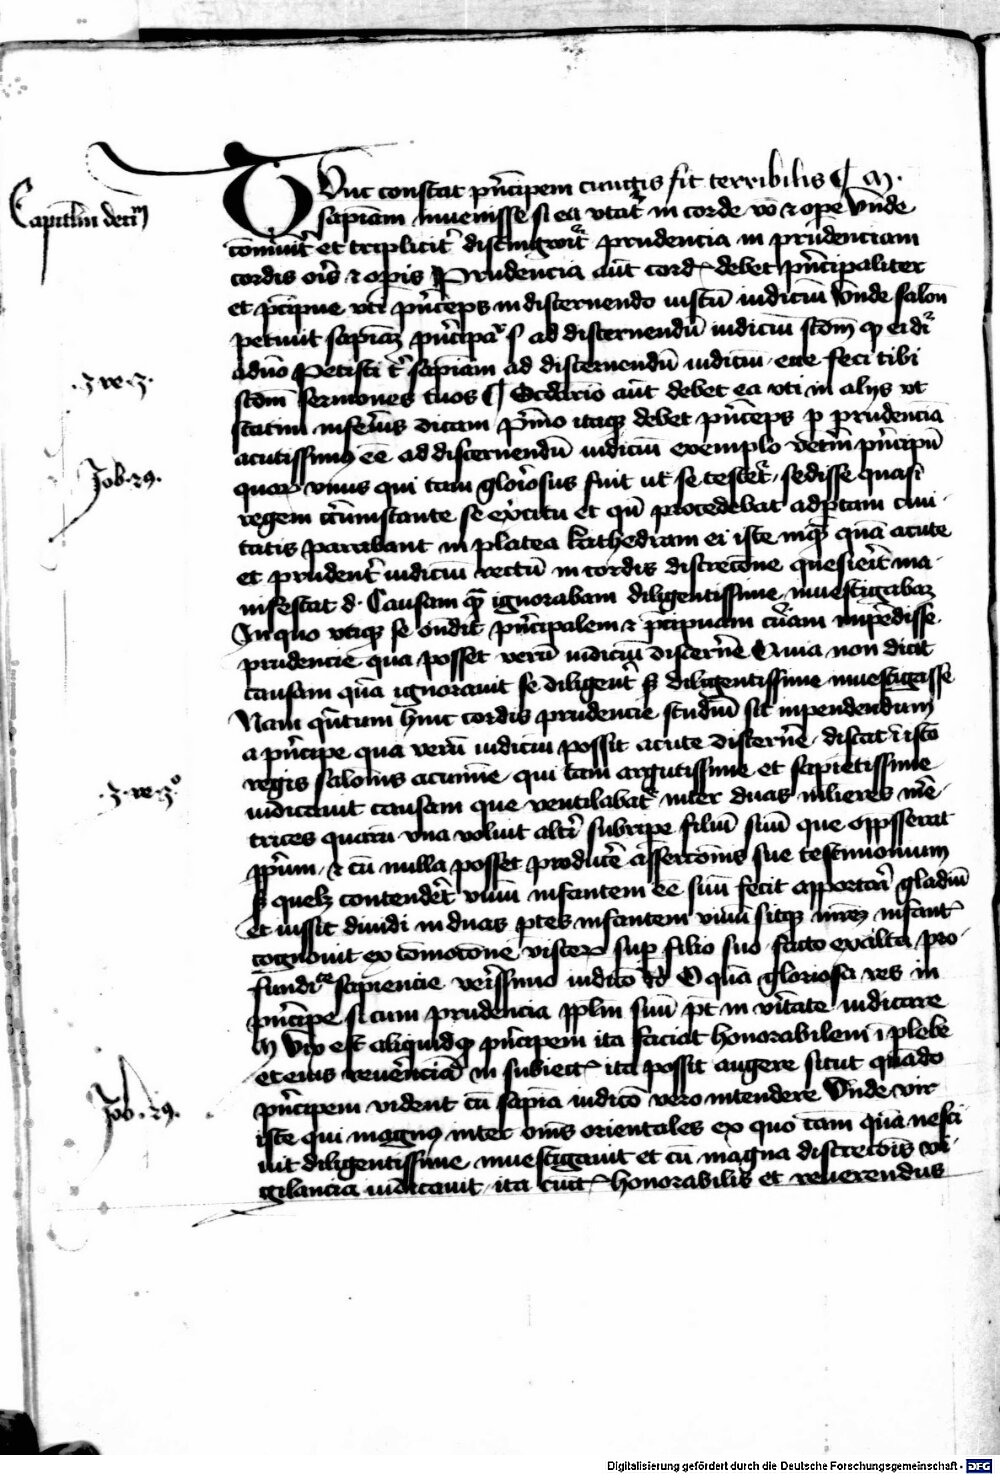 Capitulm decim
Tunc constat pncipem cunctis sit terribilis ¶ m.
sapiam invenisse si ea utat in corde vo & ope Unde
et triplicit distingwit prudencia in prudenciam
cordis oris & opis Prudencia aut cord debet pncipaliter
et pcipue uti pnceps in discernendo iustu iudiciu Unde salon
petiuit sapiaz ad discernendu iudiciu scdm q ei dr
a dno Petisti t sapiam ad discernendu iudiciu ecce feci tibi
.3 re .3.
scdm sermones tuos ¶ Secdario aut debet ea uti in alijs ut
statim inferius dicam Pmo itaq debet pnceps p prudencia
acutissimus ee ad discernendu iudiciu exemplo pncipu
Job .29.
quor unus qui tam gloriosus fuit ut se testet sedisse quasi
regem circumstante se excitu et qn procedebat ad portam ciui
tatis parabant in platea kathedram ei iste inq qua acute
et prudent iudiciu rectu in cordis discrecone quesierit ma
nifestat d. Causam qua ignorabam diligentissime inuestigabaz
In quo utiq se ondit pncipalem & pcipuam curam impedisse
prudencie qua posset veru iudiciu discerne Quia non dicit
causam qua ignorauit se diligent s diligentissime inuestigasse
Nam qntum huic cordis prudencie studiu sit inpendendum
a pncipe qua veru iudiciu possit acute discerne discat i isto
.3. re .3o
regis salonis acumine qui tam argutissime et sapietissime
iudicauit causam que ventilabat inter duas mlieres me
trices quaru una voluit altri subripe filiu suu que oppsserat
ppriu & cu nulla posset produce assertionis sue testimonium
s quelz contendet uiuu infantem ee suu fecit apportari gladiu
et iussit diuidi in duas ptes infantem uiuu sitq mrez infant
cognouit ex comocone viscer sup filio suo facto ex alta pro
fundi te sapiencie verissimo iudico O qua gloriosa res in
pncipe si cum prudencia pplm suu pt in vitate iudicare
m Vix est aliquid q pncipem ita faciat honorabilem i plebe
et eius reuerencia in subiect ita possit augere sicut quado
Job .29.
pncipem vident cu sapia iudico vero intendere Unde vir
iste qui magnus inter oms orientales ex quo cam qua nesci
uit diligentissime inuestigauit et cu magna discrecois vi
gilancia iudicauit ita fuit honorabilis et reuerendus
Digitalisierung gefördert durch die Deutsche Forschungsgemeinschaft - DFG